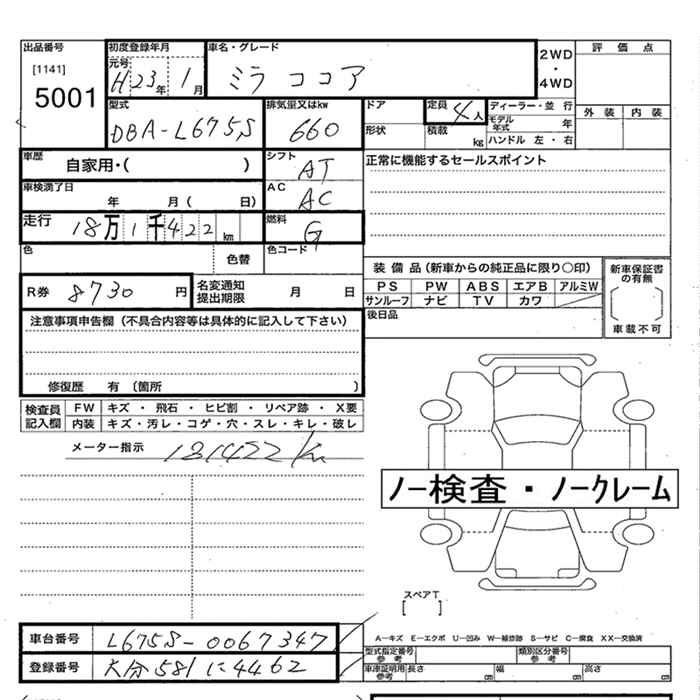 出品番号
[1141]
5001
初度登録年月
元号
H 23年 1月
車名・グレード
ミラ ココア
2WD
・
4WD
評価点
外装 内装
型式
DBA-L675S
排気量又はkw
660
ドア
定員
4人
形状
積載
kg
ディーラー・並行
モデル年式 年
ハンドル 左・右
車歴
自家用・( )
シフト
AT
正常に機能するセールスポイント
車検満了日
年 月( 日)
AC
AC
走行
18万1千422 km
燃料
G
色
色替
色コード
装備品(新車からの純正品に限り○印)
PS PW ABS エアB アルミW
サンルーフ ナビ TV カワ
新車保証書の有無
車載不可
R券 8730 円
名変通知
提出期限 月 日
後日品
注意事項申告欄(不具合内容等は具体的に記入して下さい)
修復歴 有 〔箇所 〕
検査員記入欄
FW キズ・飛石・ヒビ割・リペア跡・X要
内装 キズ・汚レ・コゲ・穴・スレ・キレ・破レ
メーター指示
181422 Km
ノー検査・ノークレーム
スペアT
[ ]
車台番号 L675S-0067347
登録番号 大分581に4462
A—キズ E—エクボ U—凹み W—補修跡 S—サビ C—腐食 XX—交換済
型式指定番号
参考
類別区分番号
参考
車庫証明用
参考
長さ cm 幅 cm 高さ cm